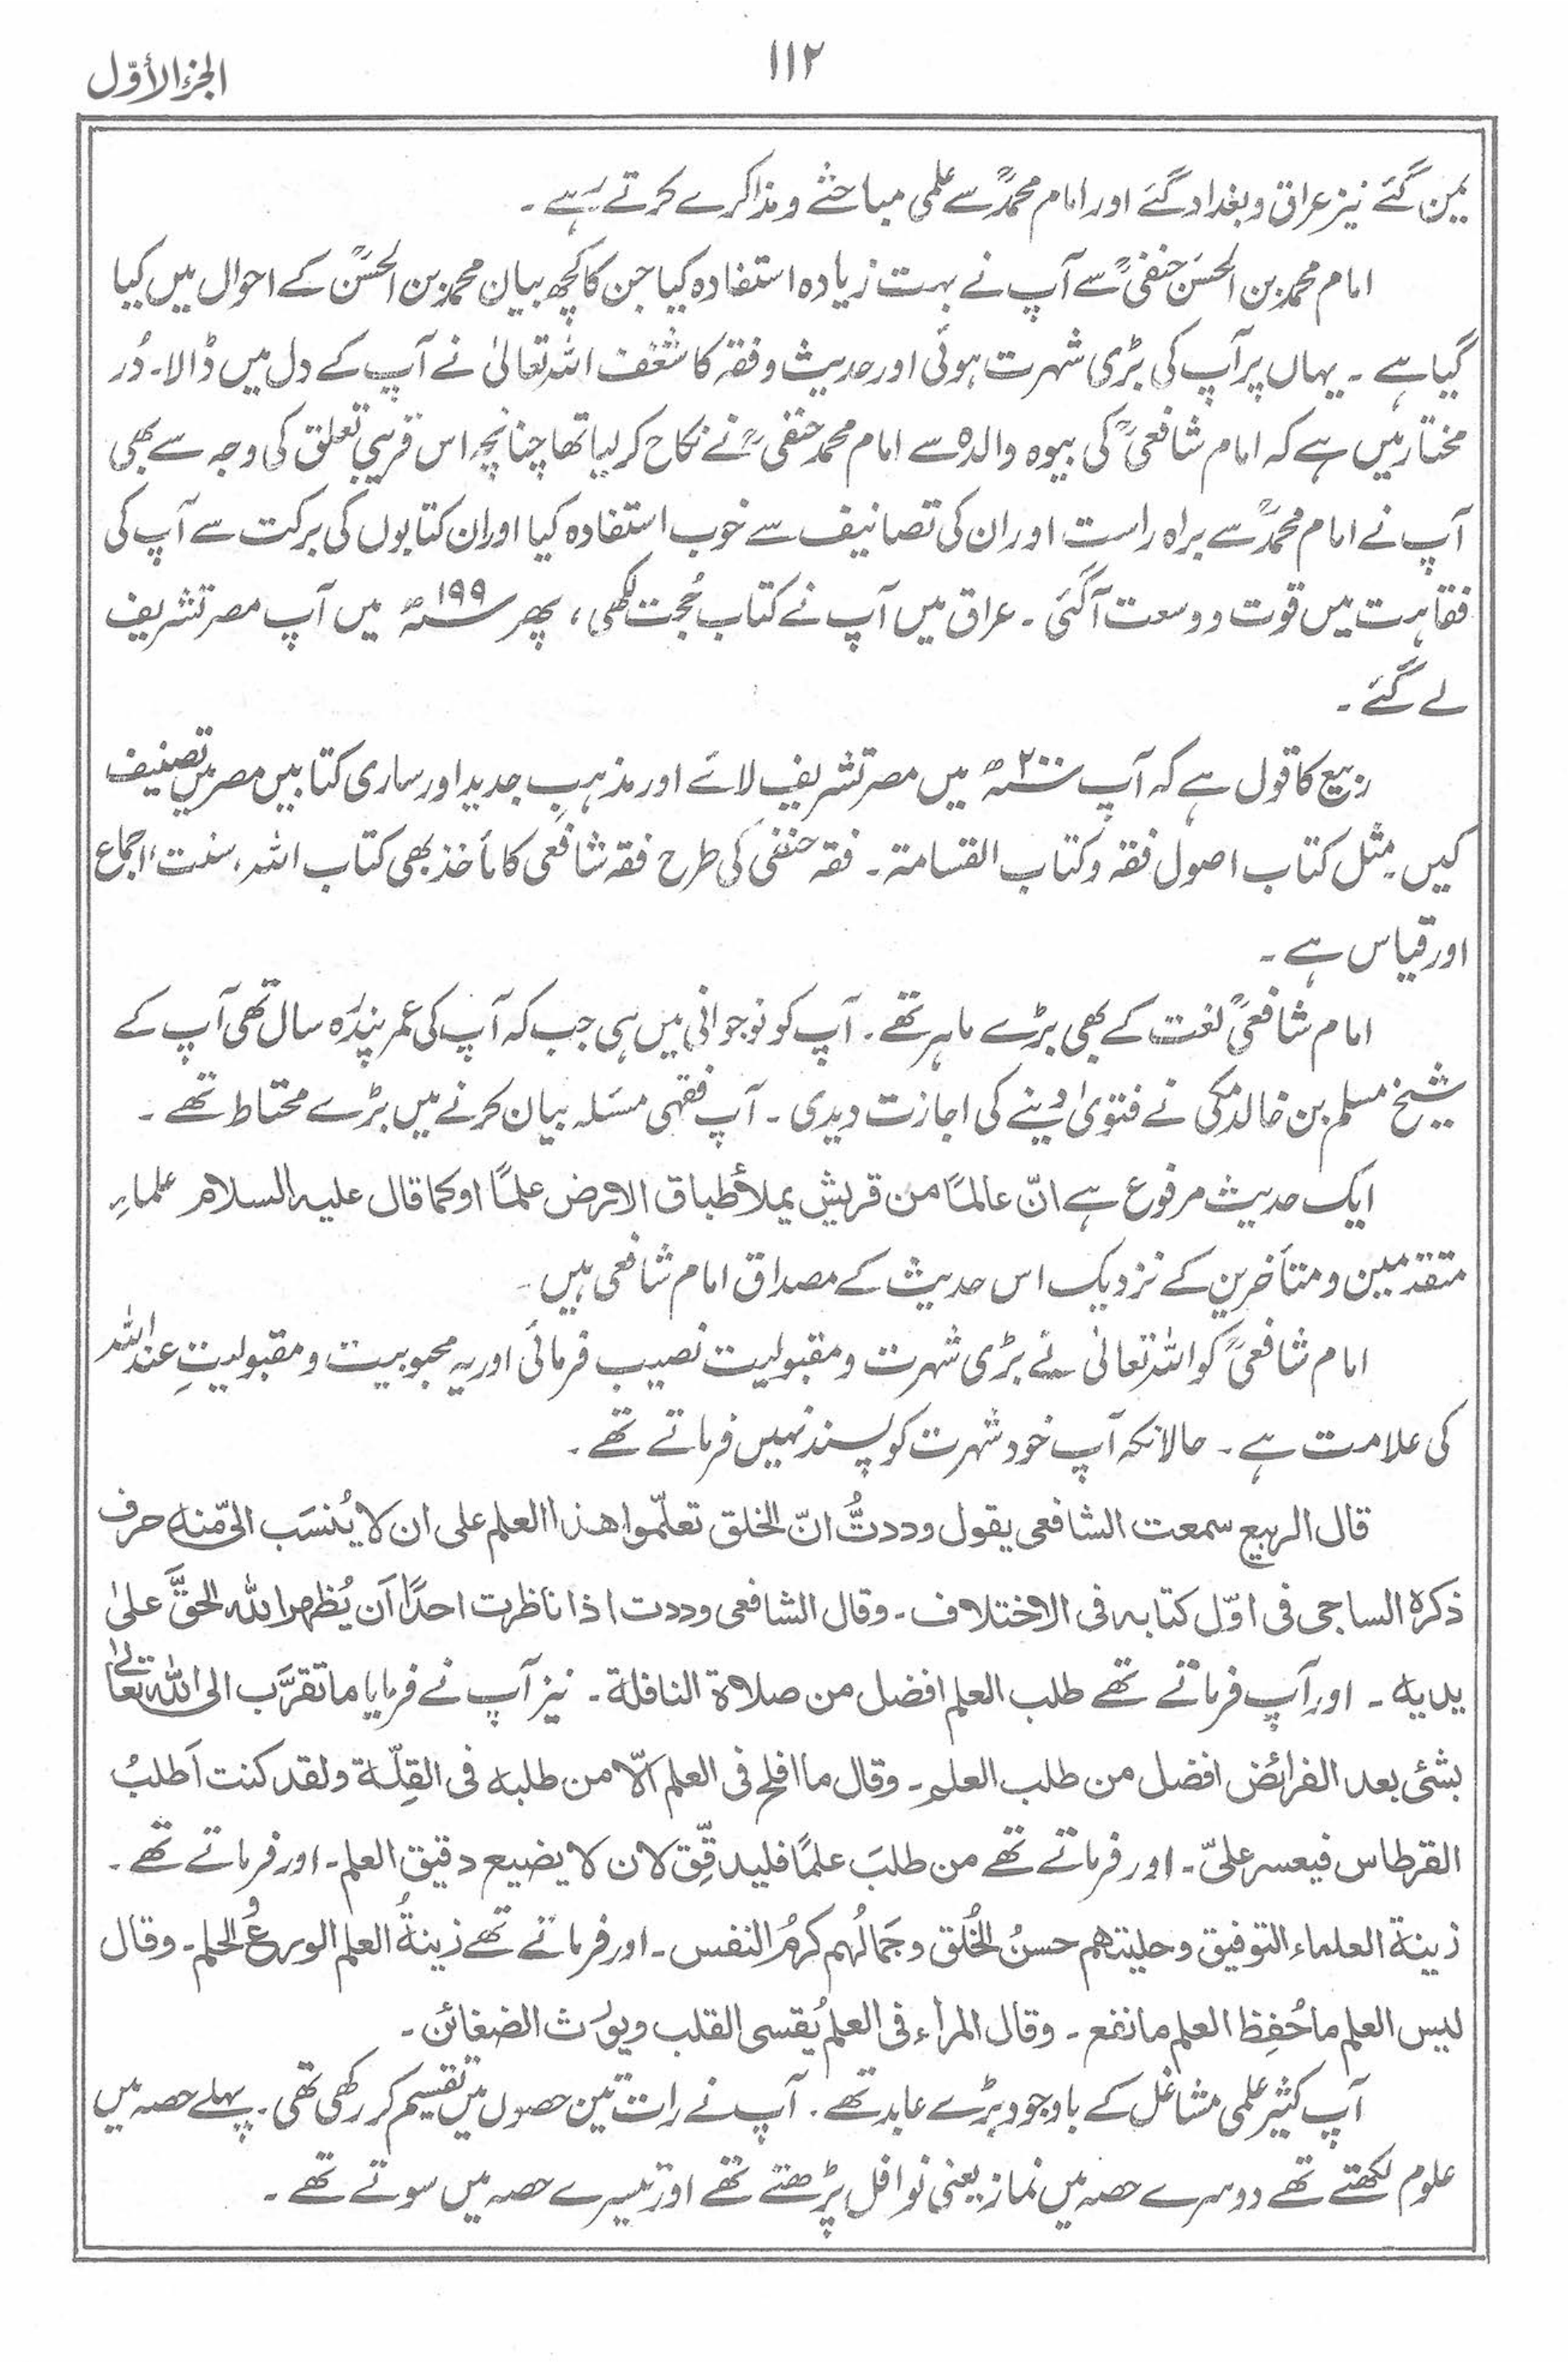 ١١٢
الجزء الأوّل
یمن گئے نیز عراق و بغداد گئے اور امام محمدؒ سے علمی مباحثے و مذاکرے کرتے رہے ۔
امام محمد بن الحسَن حنفیؒ سے آپ نے بہت زیادہ استفادہ کیا جن کا کچھ بیان محمد بن الحسنؒ کے احوال میں کیا
گیا ہے ۔ یہاں پر آپ کی بڑی شہرت ہوئی اور حدیث و فقہ کا شغف اللہ تعالیٰ نے آپ کے دل میں ڈالا۔ دُر
مختار میں ہے کہ امام شافعیؒ کی بیوہ والدہ سے امام محمد حنفیؒ نے نکاح کر لیا تھا چنانچہ اس قریبی تعلق کی وجہ سے بھی
آپ نے امام محمدؒ سے براہ راست اور ان کی تصانیف سے خوب استفادہ کیا اور ان کتابوں کی برکت سے آپ کی
فقاہت میں قوت و وسعت آگئی ۔ عراق میں آپ نے کتاب حُجت لکھی ، پھر ۱۹۹ سنہ ھ میں آپ مصر تشریف
لے گئے ۔
ربیع کا قول ہے کہ آپ ۲۰۰ سنہ ھ میں مصر تشریف لائے اور مذہبِ جدید اور ساری کتابیں مصر میں تصنیف
کیں ۔ مثل کتاب اصول فقہ و کتاب القسامۃ ۔ فقہ حنفی کی طرح فقہ شافعی کا مأخذ بھی کتاب اللہ ، سنت ، اجماع
اور قیاس ہے ۔
امام شافعیؒ لغت کے بھی بڑے ماہر تھے ۔ آپ کو نوجوانی میں ہی جب کہ آپ کی عمر پندرہ سال تھی آپ کے
شیخ مسلم بن خالد مکی نے فتویٰ دینے کی اجازت دیدی ۔ آپ فقہی مسئلہ بیان کرنے میں بڑے محتاط تھے ۔
ایک حدیث مرفوع ہے انّ عالمًا من قریش یملأ طباق الارض علمًا او کما قال علیہ السلام علماءِ
متقدمین و متأخرین کے نزدیک اس حدیث کے مصداق امام شافعی ہیں ۔
امام شافعیؒ کو اللہ تعالیٰ نے بڑی شہرت و مقبولیت نصیب فرمائی اور یہ محبوبیت و مقبولیتِ عند اللہ
کی علامت ہے ۔ حالانکہ آپ خود شہرت کو پسند نہیں فرماتے تھے ۔
قال الربیع سمعت الشافعی یقول وددتُّ انّ الخلق تعلّموا ھذا العلم علی ان لا یُنسَب الیّ منہ حرف
ذکرہ الساجی فی اوّل کتابہ فی الاختلاف ۔ وقال الشافعی وددت اذا ناظرت احدًا اَن یُظھر اللہ الحقَّ علیٰ
یدیہ ۔ اور آپ فرماتے تھے طلب العلم افضل من صلاۃ النافلۃ ۔ نیز آپ نے فرمایا ما تقرَّب الی اللہ تعالیٰ
بشئ بعد الفرائض افضل من طلب العلم ۔ وقال ما افلح فی العلم اَلّا من طلبہ فی القِلّۃ ولقد کنت اَطلبُ
القرطاس فیعسر علیّ ۔ اور فرماتے تھے من طلبَ علمًا فلیدقّق لان لا یضیع دقیق العلم ۔ اور فرماتے تھے ۔
زینۃ العلماء التوفیق وحلیتھم حسنُ الخُلق وجَمالُھم کرمُ النفس ۔ اور فرماتے تھے زینۃُ العلم الورعُ و الحلم ۔ وقال
لیس العلم ما حُفِظ العلم ما نفع ۔ وقال المراء فی العلم یُقسی القلب ویورث الضغائن ۔
آپ کثیر علمی مشاغل کے باوجود بڑے عابد تھے ۔ آپ نے رات تین حصوں میں تقسیم کر رکھی تھی ۔ پہلے حصہ میں
علوم لکھتے تھے دوسرے حصہ میں نماز یعنی نوافل پڑھتے تھے اور تیسرے حصہ میں سوتے تھے ۔